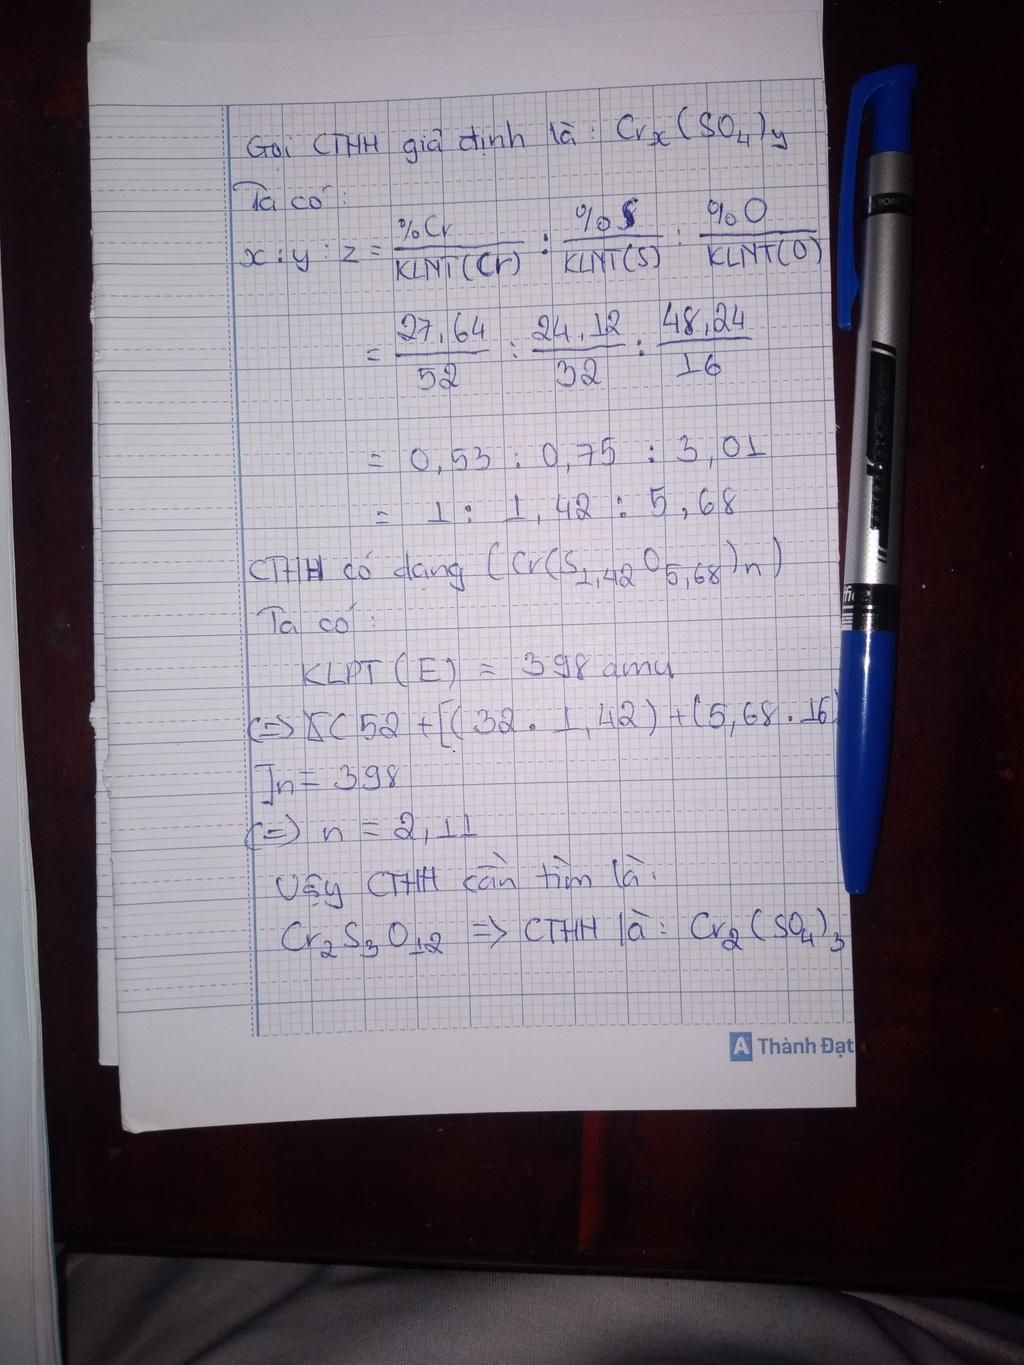 Gọi CTHH giả định là: Crx(SO4)y
Ta có:
x : y : z = %Cr/KLNT(Cr) : %S/KLNT(S) : %O/KLNT(O)
= 27,64/52 : 24,12/32 : 48,24/16
= 0,53 : 0,75 : 3,01
= 1 : 1,42 : 5,68
CTHH có dạng (Cr(S1,42O5,68)n)
Ta có:
KLPT(E) = 398 amu
(=) [(52 + [(32 . 1,42) + (5,68 . 16)
]n = 398
(=) n = 2,11
Vậy CTHH cần tìm là:
Cr2S3O12 => CTHH là: Cr2(SO4)3
A Thành Đạt
POINT
ffice